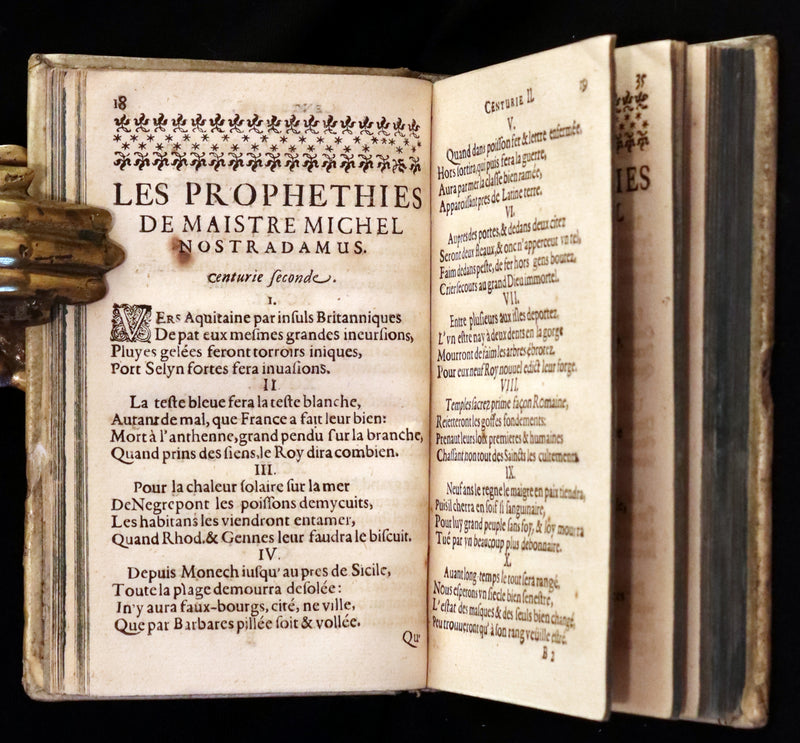 18
LES PROPHETHIES
DE MAISTRE MICHEL
NOSTRADAMUS.
centurie ſeconde.
I.
VErs Aquitaine par inſuls Britanniques
De pat eux meſmes grandes incurſions,
Pluyes gelées feront torroirs iniques,
Port Selyn fortes fera inuaſions.
II
La teſte bleue fera la teſte blanche,
Autant de mal, que France a fait leur bien:
Mort à l'anthenne, grand pendu ſur la branche,
Quand prins des ſiens, le Roy dira combien.
III.
Pour la chaleur ſolaire ſur la mer
De Negrepont les poiſſons demycuits,
Les habitans les viendront entamer,
Quand Rhod. & Gennes leur faudra le biſcuit.
IV.
Depuis Monech iuſqu'au pres de Sicile,
Toute la plage demourra deſolée:
In'y aura faux-bourgs, cité, ne ville,
Que par Barbares pillée ſoit & vollée.
Qu'
CENTURIE II. 19
V.
Quand dans poiſſon fer & lettre enfermée,
Hors ſortira, qui puis fera la guerre,
Aura par mer ſa claſſe bien ramée,
Apparoiſſant pres de Latine terre.
VI.
Aupres des portes, & dedans deux citez
Seront deux fleaux, & onc n'apperceut vn tel,
Faim dedans peſte, de fer hors gens boutez,
Crier ſecours au grand Dieu immortel.
VII.
Entre pluſieurs aux iſles deportez,
L'vn eſtre nay à deux dents en la gorge
Mourront de faim les arbres ebrotez,
Pour eux neuf Roy nouuel edict leur forge.
VIII.
Temples ſacrez prime façon Romaine,
Reietteront les goffes fondements:
Prenant leurs loix premieres & humaines
Chaſſant, non tout des Saincts les cultements
IX.
Neuf ans le regne le maigre en paix tiendra,
Puis il cherra en ſoif ſi ſanguinaire,
Pour luy grand peuple ſans foy, & loy mourra
Tué par vn beaucoup plus debonnaire.
X.
Auant long-temps le tout ſera rangé,
Nous eſperons vn ſiecle bien ſeneſtre,
L'eſtat des maſques & des ſeuls bien changé,
Peu trouueront qu'à ſon rang veuille eſtre.
B 2
35
IES
L